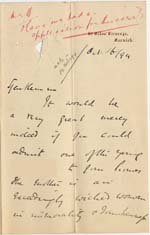 Have we had a
application for success?
Vicarage,
Oct 16/94
Gentlemen
It would be
a very great mercy
indeed if you could
admit one of the young
to your homes
The mother is an
exceedingly wicked woman
in immorality & drunkenness